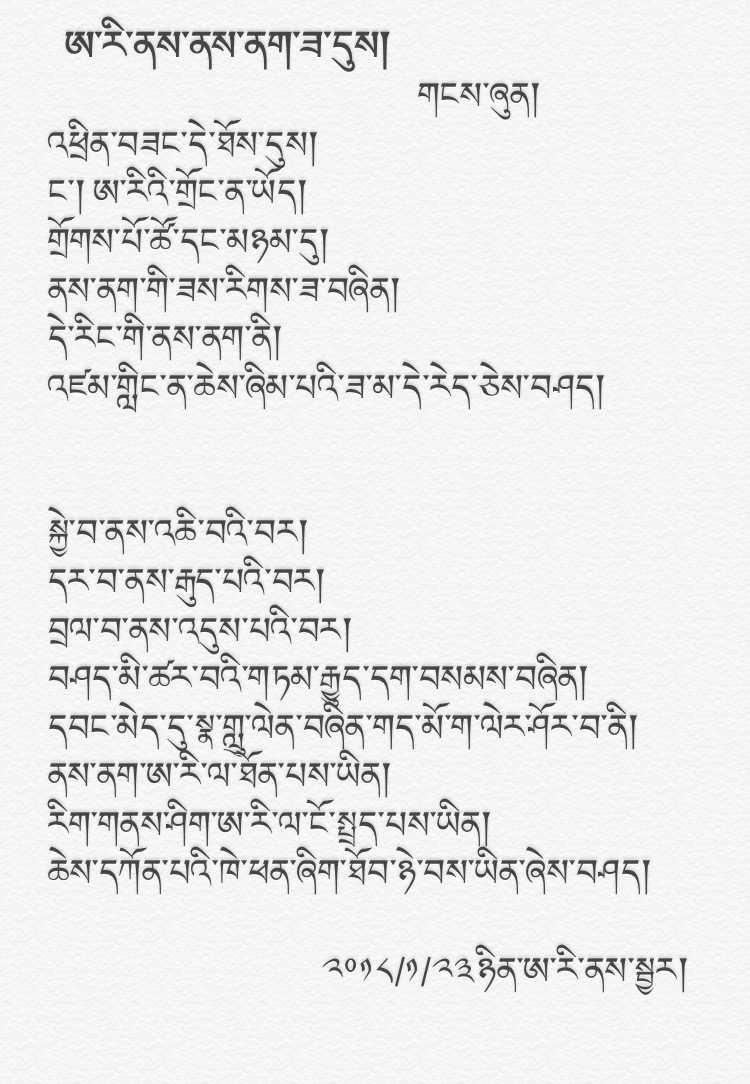 ཨ་རི་ནས་ནས་ནག་ཟ་དུས།
གངས་ཞུན།
འཕྲིན་བཟང་དེ་ཐོས་དུས།
ང་། ཨ་རིའི་གྲོང་ན་ཡོད།
གྲོགས་པོ་ཚོ་དང་མཉམ་དུ།
ནས་ནག་གི་ཟས་རིགས་ཟ་བཞིན།
དེ་རིང་གི་ནས་ནག་ནི།
འཛམ་གླིང་ན་ཆེས་ཞིམ་པའི་ཟ་མ་དེ་རེད་ཅེས་བཤད།
སྐྱེ་བ་ནས་འཆི་བའི་བར།
དར་བ་ནས་རྒུད་པའི་བར།
བྲལ་བ་ནས་འདུས་པའི་བར།
བཤད་མི་ཚར་བའི་གཏམ་རྒྱུད་དག་བསམས་བཞིན།
དབང་མེད་དུ་སྣ་གླུ་ལེན་བཞིན་གད་མོ་ག་ལེར་ཤོར་བ་ནི།
ནས་ནག་ཨ་རི་ལ་ཐོན་པས་ཡིན།
རིག་གནས་ཤིག་ཨ་རི་ལ་ངོ་སྤྲད་པས་ཡིན།
ཆེས་དཀོན་པའི་ཁེ་ཕན་ཞིག་ཐོབ་ཉེ་བས་ཡིན་ཞེས་བཤད།
༢༠༡༨/༡/༢༣ཉིན་ཨ་རི་ནས་སྦྱར།